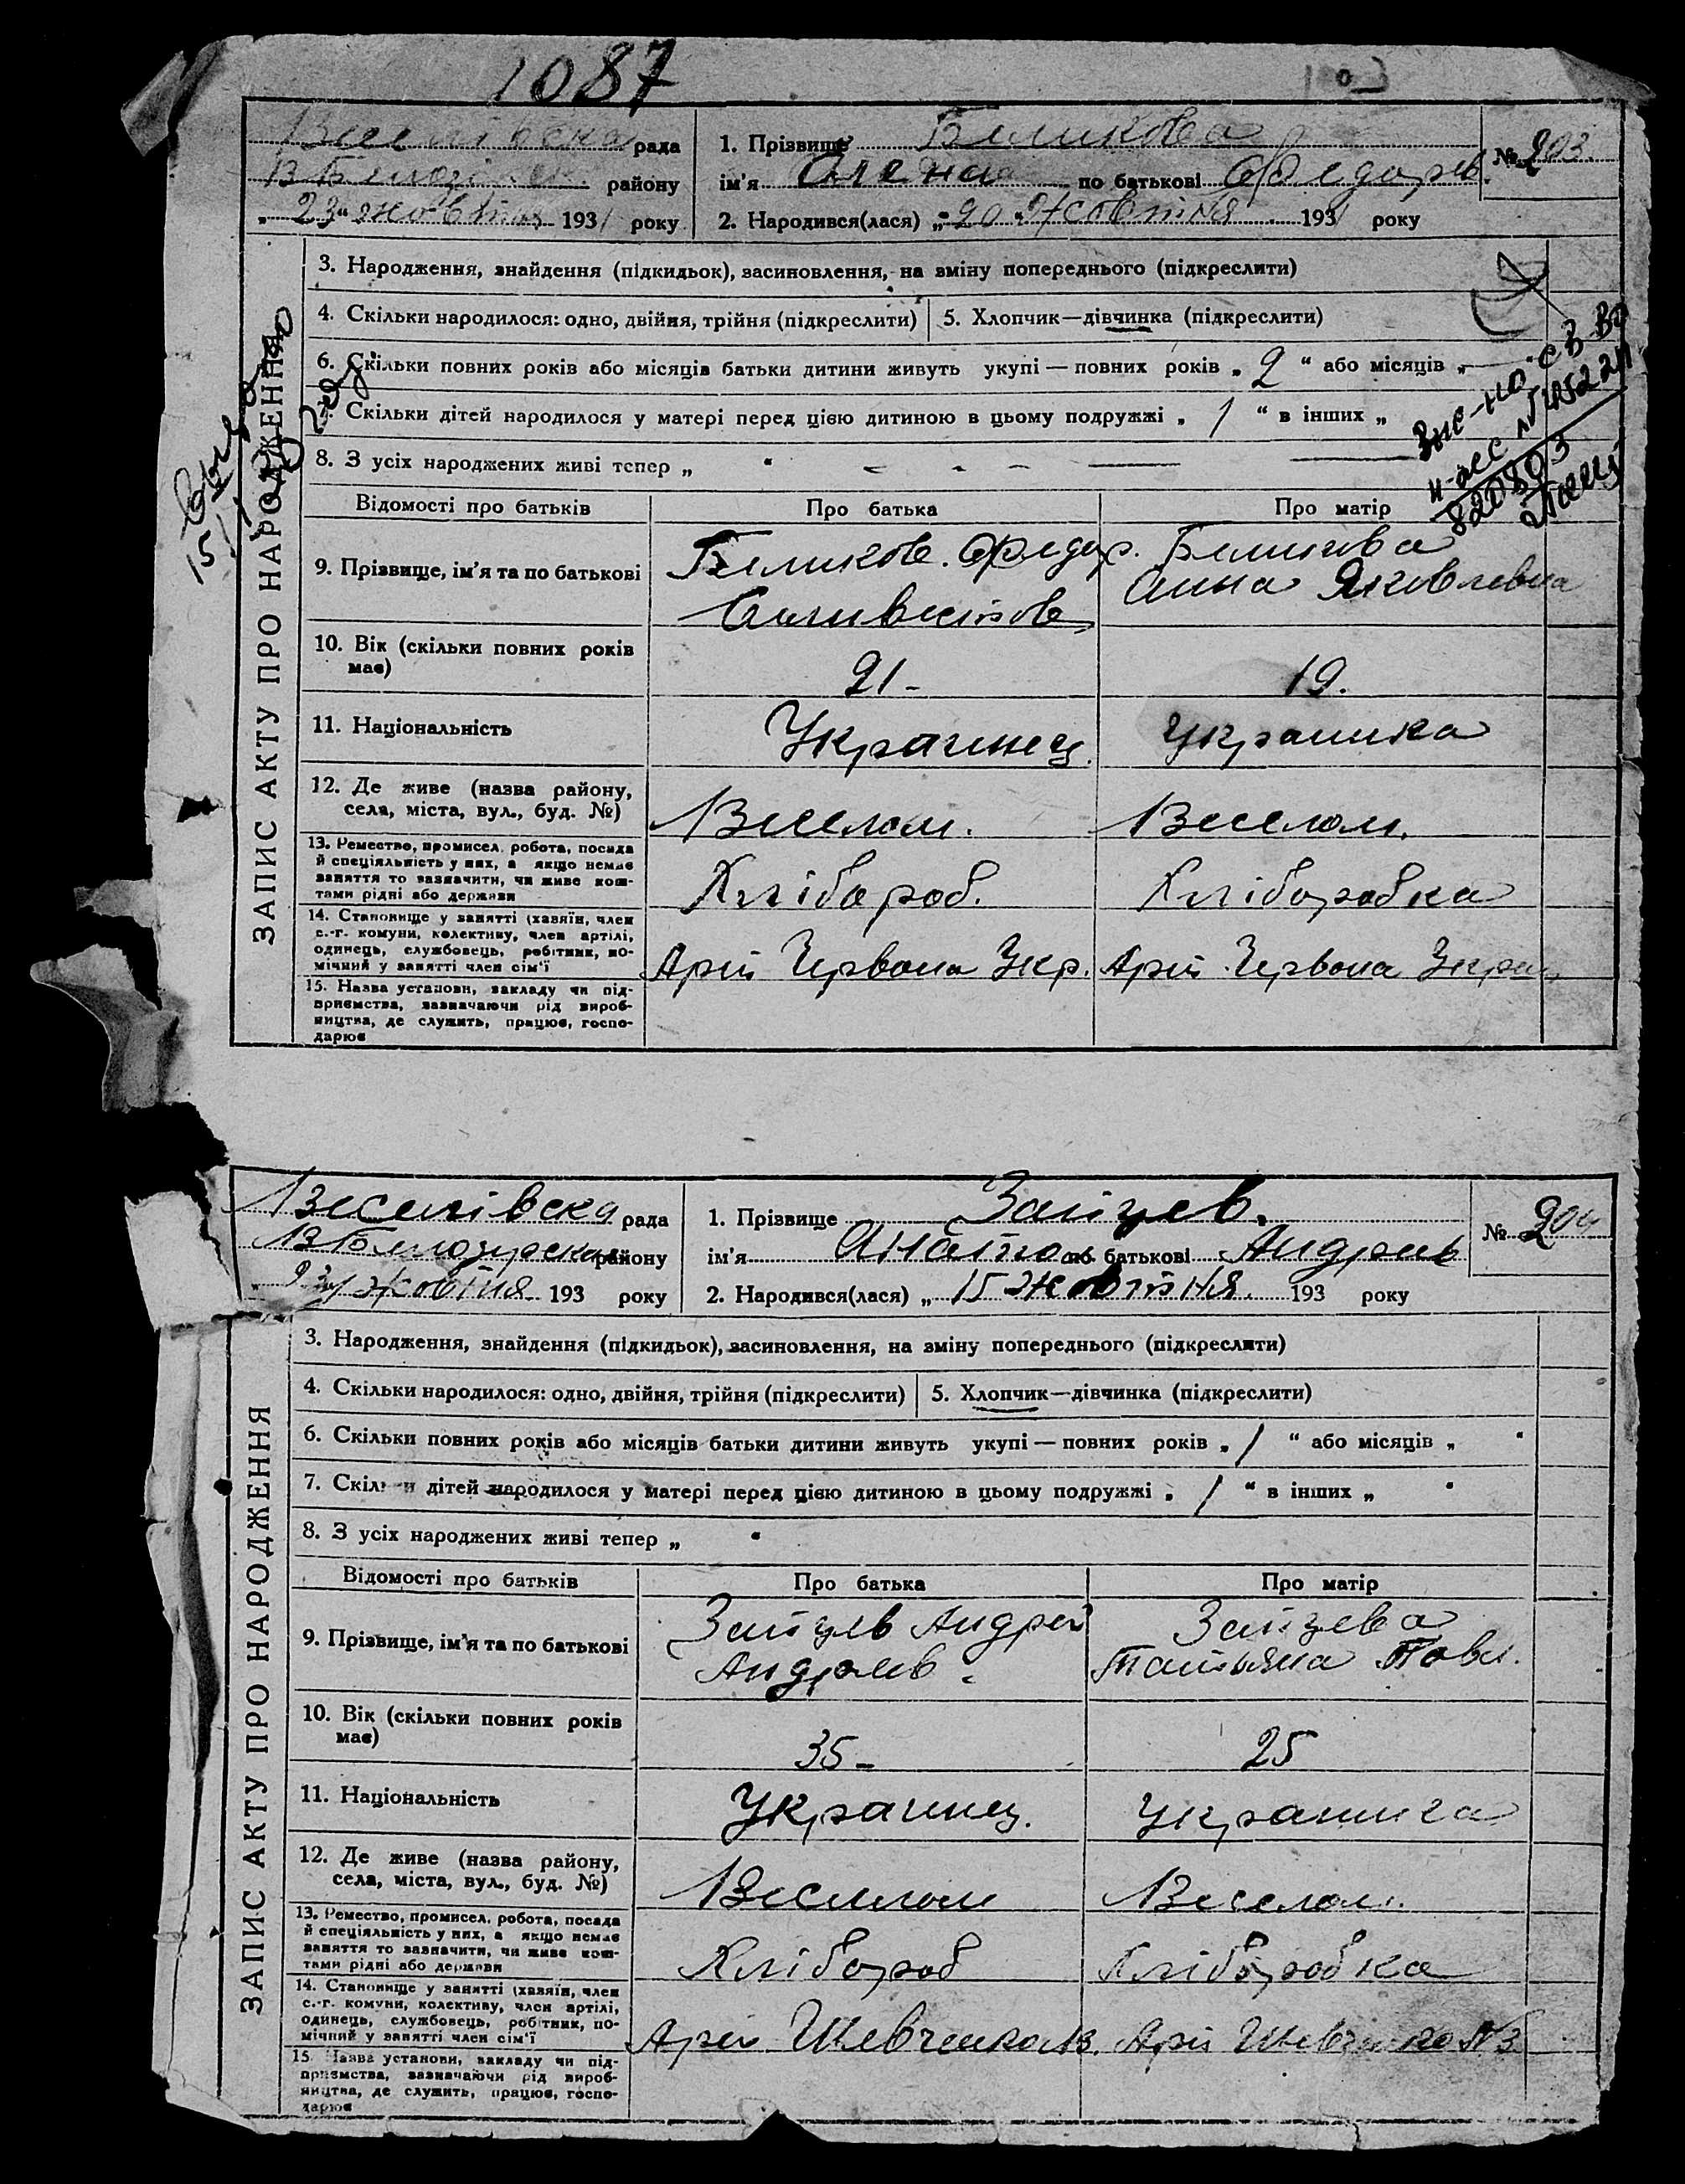 1087
Веселівска рада
1. Прізвище Беликова
№ 203.
району
ім'я Олена по батькові Федоров.
„ 23 " жовтня 1931 року
2. Народився(лася) „ 20 " жовтня 193 року
3. Народження, знайдення (підкидьок), засиновлення, на зміну попереднього (підкреслити)
4. Скільки народилося: одно, двійня, трійня (підкреслити)
5. Хлопчик—дівчинка (підкреслити)
6. Скільки повних років або місяців батьки дитини живуть укупі — повних років „ 2 " або місяців „
7. Скільки дітей народилося у матері перед цією дитиною в цьому подружжі „ 1 " в інших „
8. З усіх народжених живі тепер „ "
ЗАПИС АКТУ ПРО НАРОДЖЕННЯ
Відомості про батьків
Про батька
Про матір
9. Прізвище, ім'я та по батькові
Беликов. Федор.
Беликова
Анна Яковлевна
10. Вік (скільки повних років має)
21 -
19.
11. Національність
Украинец.
Украинка
12. Де живе (назва району, села, міста, вул., буд. №)
Веселом.
Веселом.
13. Ремество, промисел, робота, посада й спеціяльність у них, а якщо немає заняття то зазначити, чи живе коштами рідні або держави
Хлібороб.
Хліборобка
14. Становище у занятті (хазяїн, член с.-г. комуни, колективу, член артілі, одинець, службовець, робітник, помічний у занятті член сім'ї
Арті Червона Укр.
Арті Червона Украи
15. Назва установи, закладу чи підприємства, зазначаючи рід виробництва, де служить, працює, господарює
Веселівска рада
1. Прізвище Зайцев.
№ 204
В Білозурска району
ім'я Анатол по батькові Андреев
„ 23 " жовтня 193 року
2. Народився(лася) „ 15 жовтня. 193 року
3. Народження, знайдення (підкидьок), засиновлення, на зміну попереднього (підкреслити)
4. Скільки народилося: одно, двійня, трійня (підкреслити)
5. Хлопчик—дівчинка (підкреслити)
6. Скільки повних років або місяців батьки дитини живуть укупі — повних років „ 1 " або місяців „ "
7. Скільки дітей народилося у матері перед цією дитиною в цьому подружжі „ 1 " в інших „ "
8. З усіх народжених живі тепер „ "
ЗАПИС АКТУ ПРО НАРОДЖЕННЯ
Відомості про батьків
Про батька
Про матір
9. Прізвище, ім'я та по батькові
Зайцев Андрей
Андреев.
Зайцева
Татьяна Павл.
10. Вік (скільки повних років має)
35 -
25
11. Національність
Украинец.
Украинка
12. Де живе (назва району, села, міста, вул., буд. №)
Веселом
Веселом.
13. Ремество, промисел, робота, посада й спеціяльність у них, а якщо немає заняття то зазначити, чи живе коштами рідні або держави
Хлібороб
Хліборобка
14. Становище у занятті (хазяїн, член с.-г. комуни, колективу, член артілі, одинець, службовець, робітник, помічний у занятті член сім'ї
Арті Шевченко
Арті Шевченко №3
15. Назва установи, закладу чи підприємства, зазначаючи рід виробництва, де служить, працює, господарює